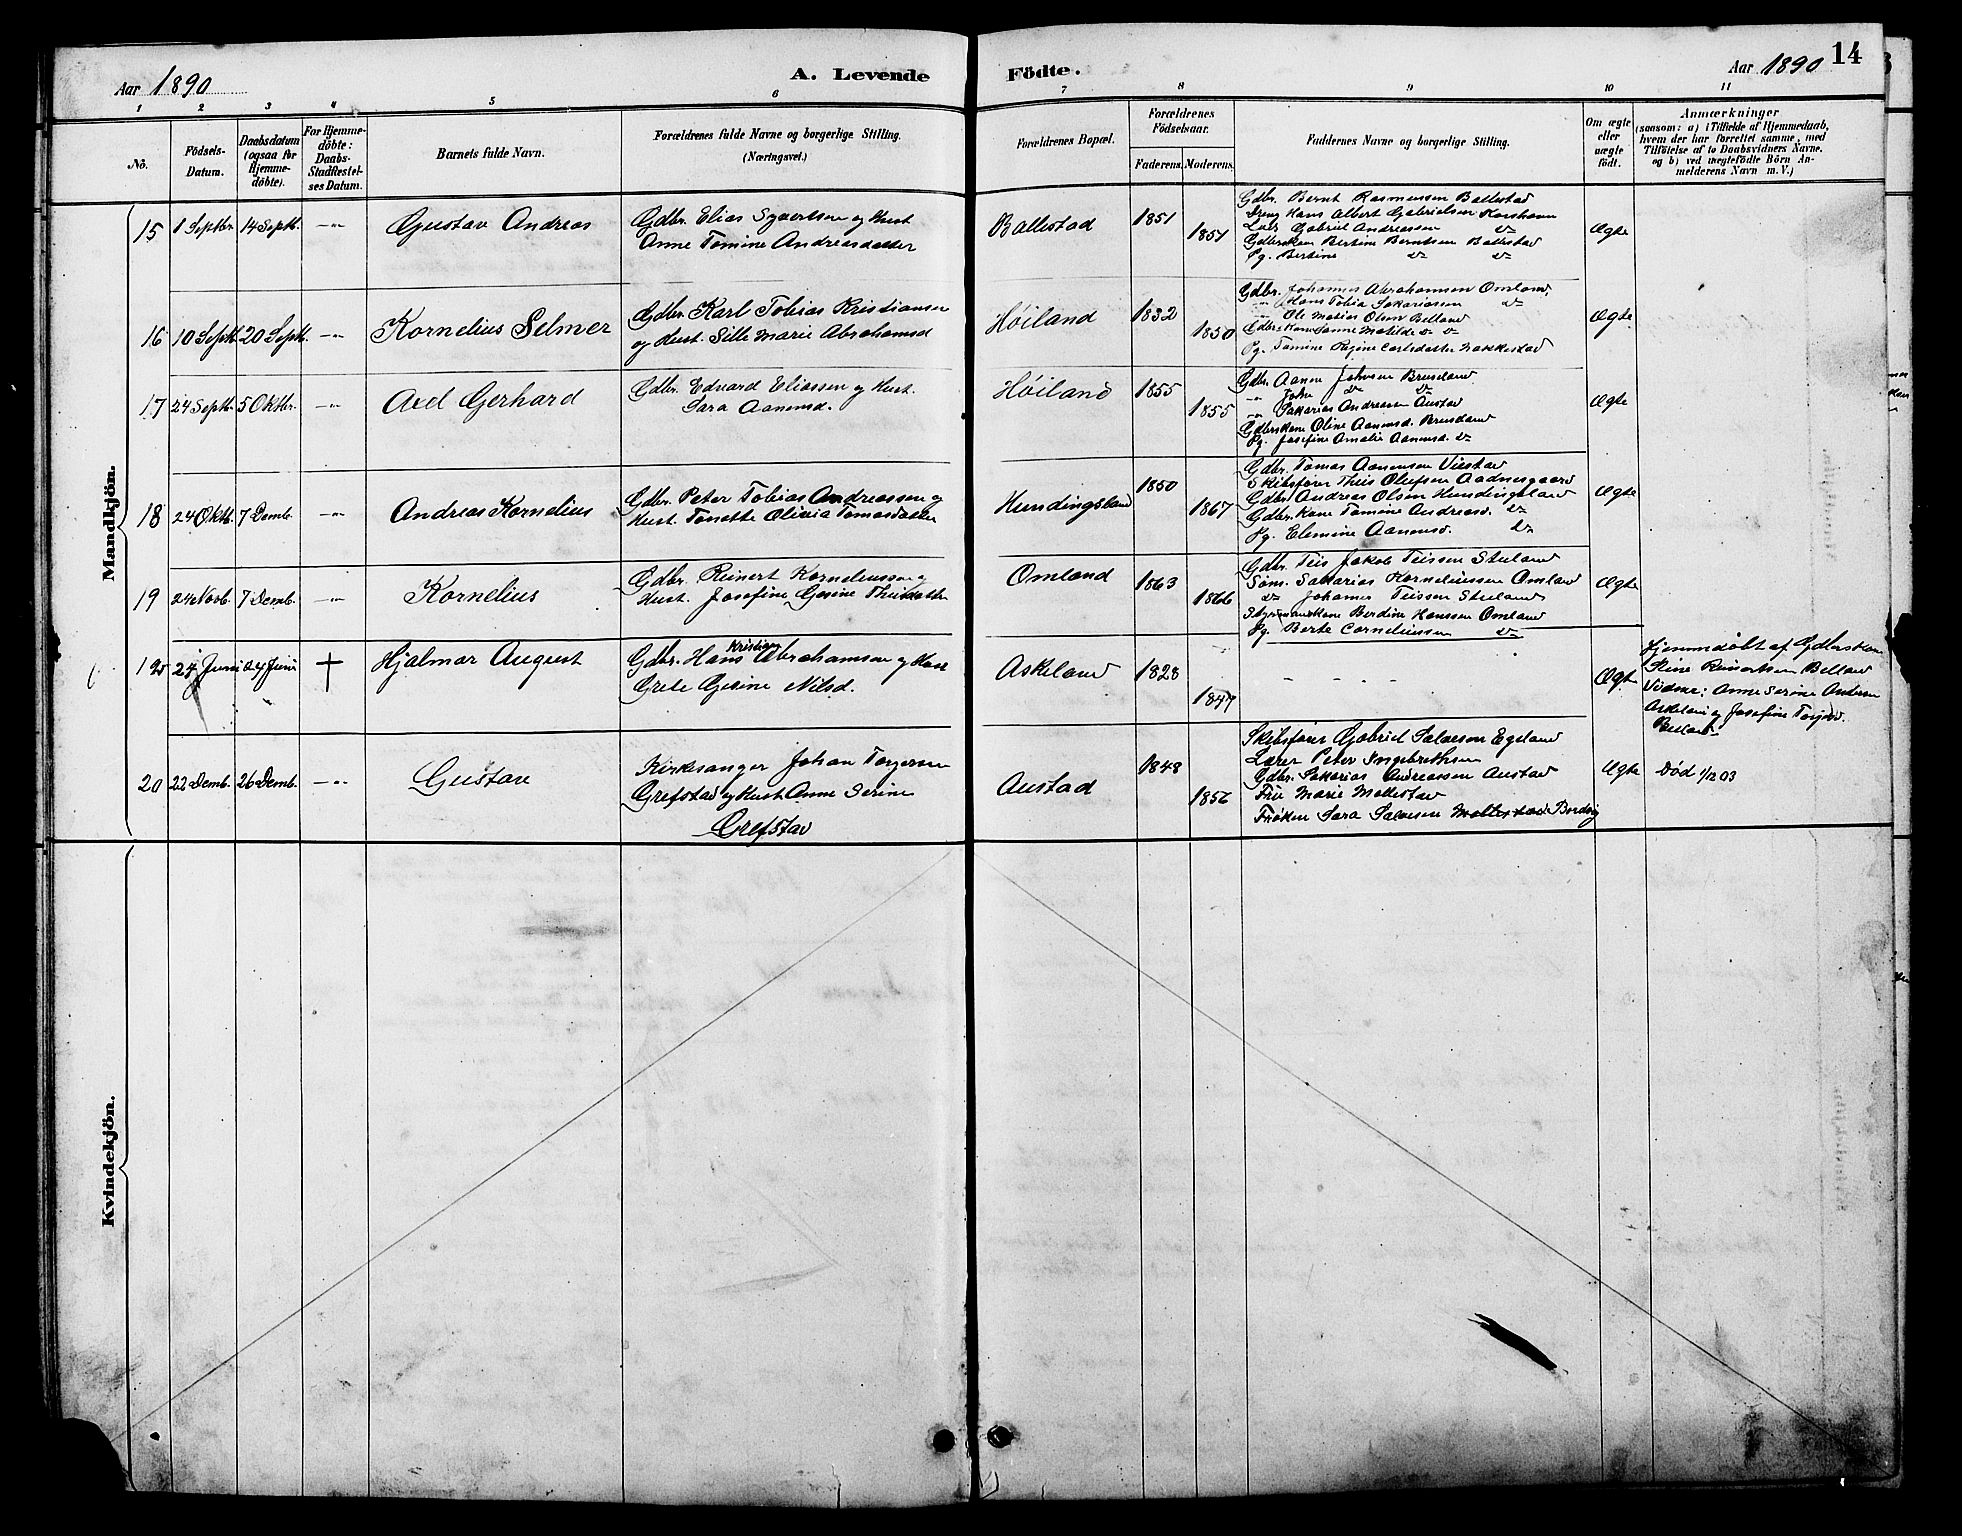 14
Aar 1890
A. Levende
Födte.
Aar 1890
1 2 3 4 5 6 7 8 9 10 11
No.
Födsels-
Datum.
Daabsdatum
(ogsaa for
Hjemme-
döbte).
For Hjemme-
döbte:
Daabs-
Stadfæstel-
ses Datum.
Barnets fulde Navn.
Forældrenes fulde Navne og borgerlige Stilling.
(Næringsvei.)
Forældrenes Bopæl.
Forældrenes
Födselsaar.
Faderens.
Moderens.
Faddernes Navne og borgerlige Stilling.
Om ægte
eller
uægte
født.
Anmærkninger
(saasom: a) i Tilfælde af Hjemmedaab,
hvem der har forrettet samme, med
Tilföielse af to Daabsvidners Navne.
og b) ved uægtefödte Börn An-
melderens Navn m. V.)
Mandkjön.
15 1 Septbr. 14 Septb. -"- Gustav Andreas
Gdbr. Elias Syvertsen og Hust.
Anne Tomine Andreasdatter
Ballestad 1851 1851
Gdbr. Bernt Rasmussen Ballestad
Dreng Hans Albert Gabrielsen Korshavn
Gabriel Andreassen do
Gdbrskone Bertine Berntsen Ballestad
Pg. Bertine do do
Ægte
16 10 Septb. 20 Septb. -"- Kornelius Selmer
Gdbr. Karl Tobias Kristiansen
og Hust. Sille Marie Abrahamsd
Høiland 1832 1850
Gdbr. Johannes Abrahamsen Omland
-"- Hans Tobia Sakariassen do
-"- Ole Matias Olsen Belland
Gdbr. Kone Sanne Matilde do do
Pg. Tomine Regine Carlsdatter
Ægte
17 24 Septb. 5 Oktbr. -"- Axel Gerhard
Gdbr. Edvard Eliassen og Hust.
Sara Aanensd.
Høiland 1855 1855
Gdbr. Aanen Johnsen Bruseland
-"- John do do
-"- Sakarias Andreasen Austad
Gdbrskone Oline Aanensd. Bruseland
Pg. Josefine Amalie Aanensd. do
Ægte
18 24 Oktb. 7 Demb. -"- Andreas Kornelius
Gdbr. Peter Tobias Andreassen og
Hust. Tonette Olivia Tomasdatter
Hundingsland 1850 1867
Gdbr. Tomas Aanensen Viestad
Skibsfører Theis Olufsen Aadnesgaard
Gdbr. Andreas Olsen Hundingsland
Gdbr. Kone Tomine Andreasd. do
Pg. Elemine Aanensd. do
Ægte
19 24 Novb. 7 Demb. -"- Kornelius
Gdbr. Reinert Korneliussen og
Hust. Josefine Gesine Theisdatter
Omland 1863 1866
Gdbr. Teis Jakob Teissen Stuland
Søns. Sakarias Korneliussen Omland
do Johannes Teissen Stuland
Styrmandskone Berdine Hanssen Omland
Pg. Berte Corneliussen do
Ægte
24 Juni 24 Juni † Hjalmar August
Gdbr. Hans Kristian Abrahamsen og Hust
Grete Gesine Nilsd.
Askeland 1828 1847
- - - -
Ægte
Hjemmedøbt af Gdbrskone
Stine Reinertsen Belland
Vidner: Anne Serine Andersen
Askeland og Josefine Torjesd.
Belland
20 22 Demb. 26 Demb. -"- Gustav
Kirkesanger Johan Torjersen
Grefstad og Hust Anne Serine
Grefstad
Austad 1848 1856
Skibsfører Gabriel Salvesen Egeland
Lærer Peter Ingebrethsen
Gdbr. Sakarias Andreassen Austad
Fru Marie Mollestad
Frøken Sara Salvesen Mollestad
Ægte
Död 1/12 03
Kvindekjön.